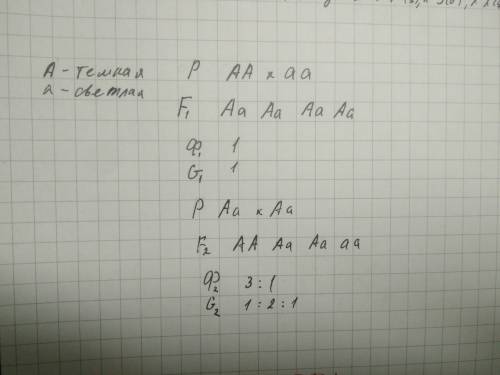 А - темная P AA x aa
а - светлая
F₁ Aa Aa Aa Aa
Ф₁ 1
G₁ 1
P Aa x Aa
F₂ AA Aa Aa aa
Ф₂ 3 : 1
G₂ 1 : 2 : 1